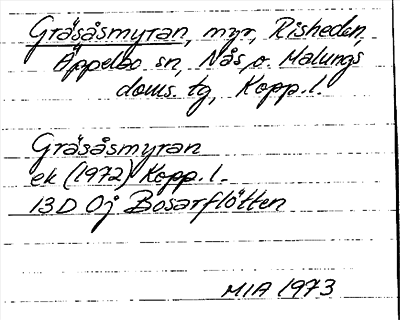 Gräsåsmyran, myr, Risheden,
Äppelbo sn, Nås o. Malungs
doms. tg, Kopp. l.
Gräsåsmyran
ek (1972) Kopp. l.
13D 0j Bosarflötten
MIA 1973